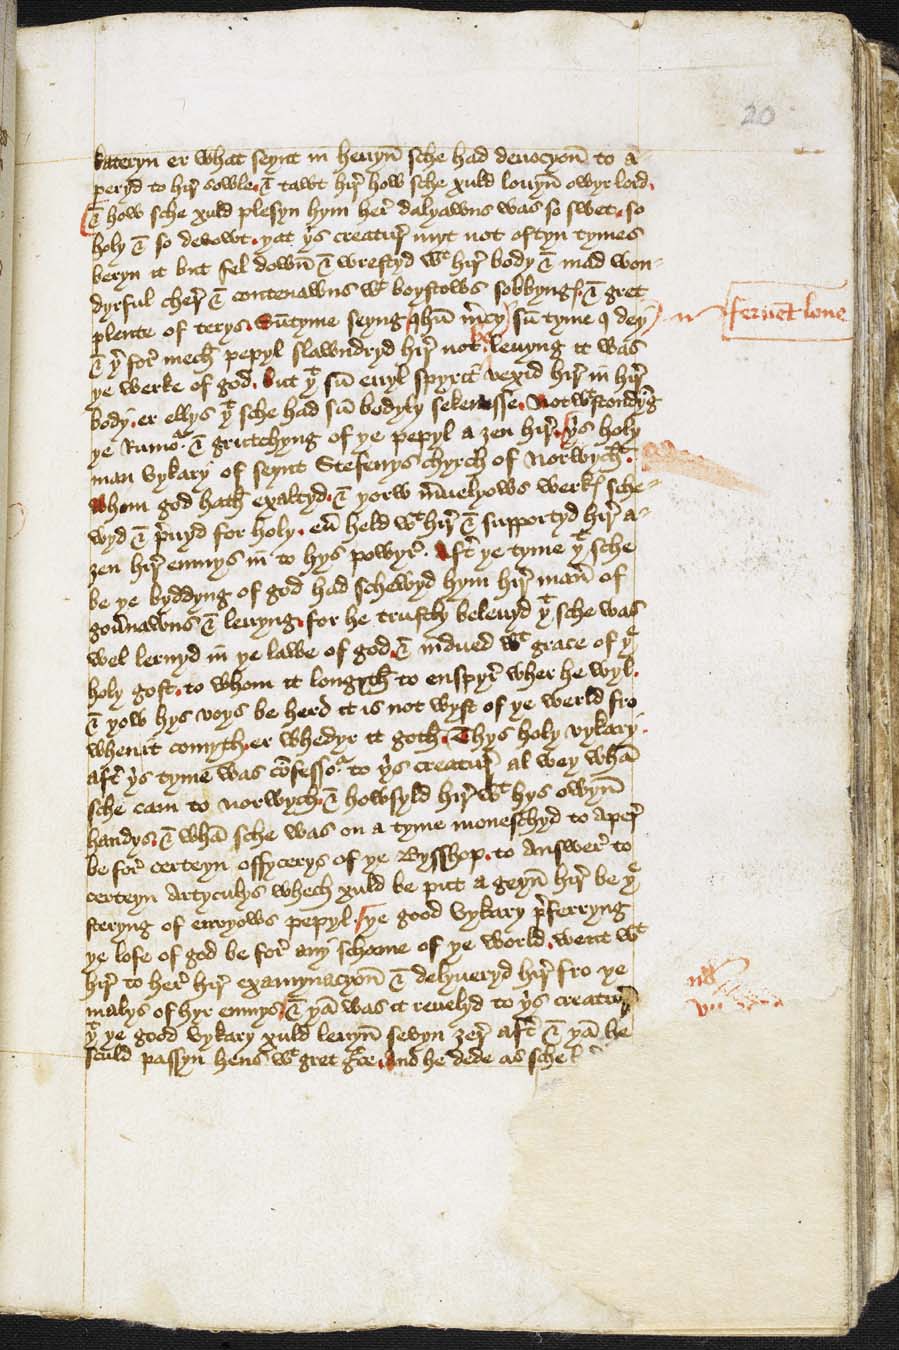 20
kateryn er what seynt in heuyn̄ sche had deuocyon̄ to a-
peryd to hir̄ sowle. & tawt hir̄ how sche xuld louyn̄ owyr lord.
& how sche xuld plesyn hym her̄ dalyawns was so swet. so
holy & so devowt. yat yͥs creatur̄ myt not oftyn tymes
beryn it but fel down̄ & wrestyd wͭ hir̄ body & mad won-
dyrful cher̄ & contenawns wͭ boystows sobbyngꝭ & gret
plente of terys. Sūtyme seyng Ihū m̄cy sūtyme I dey
feruēt loue
& yͬfor̄ mech pepyl slawndryd hir̄ not leuyng it was
ye werke of god. but yͭ sū euyl spyryt vexid hir̄ in hir̄
body. er ellys yͭ sche had sū bodyly sekenesse. Notwͭstondyn̄g
ye Rumoͬ & grutchyng of ye pepyl a ȝen hir̄. yͥs holy
man vykary of seynt Stefenys chyrch of norwych.
whom god hath exaltyd. & yorw m̄uelyows werkꝭ sche-
wyd & p̄uyd for holy. eū held wͭ hir̄ & supportyd hir̄ a-
ȝen hir̄ enmys in to hys powyr̄. Aftr̄ ye tyme yͭ sche
be ye byddyng of god had schewyd hym hir̄ man̄ of
gou̅nawns & leuyng. for he trustly beleuyd yͭ sche was
wel lernyd in ye lawe of god. & indued wͭ grace of yͤ
holy gost. to whom it longyth to enspyr̄ wher he wyl.
& yow hys voys be herd it is not wyst of ye werld fro
when it comyth. er whedyr it goth. Thys holy vykary
aftr̄ yͥs tyme was cōfessoͬ to yͥs creatur̄ al wey whā
sche cam to norwych. & howsyld hir̄ wͭ hys owyn̄
handys. & whā sche was on a tyme moneschyd to aper̄
be for̄ certeyn offycerys of ye Bysshop. to answer̄ to
certeyn artyculys whech xuld be put a geyn̄ hir̄ be yͤ
steryng of envyows pepyl. ye good vykary p̄ferryng
ye lofe of god be for̄ any schame of ye world. went wͭ
hir̄ to her̄ hir̄ examynacyon̄ & delyueryd hir̄ fro ye
malys of hyr enmys. & yā was it reuelyd to yͥs creatur̄
yͭ ye good vykary xuld leuyn̄ sevyn ȝer̄ aftr̄ & yā he
sculd passyn hens wͭ gret gͣce. And he dede as sche